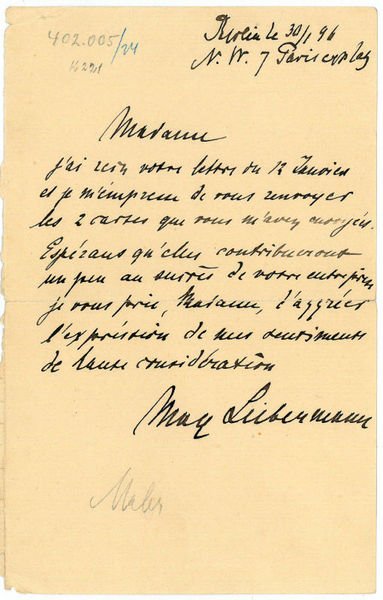 402.005/24
Berlin le 30/1 96
N. W. 7 Pariserplatz
Madame
j'ai reçu votre lettre du 12 Janvier
et je m'empresse de vous renvoyer
les 2 cartes que vous m'avez envoyées.
Espérans qu'elles contribueront
un peu au succès de votre entreprise
je vous prie, Madame, d'aggréer
l'expréssion de mes sentiments
de haute considération
Max Liebermann
Maler